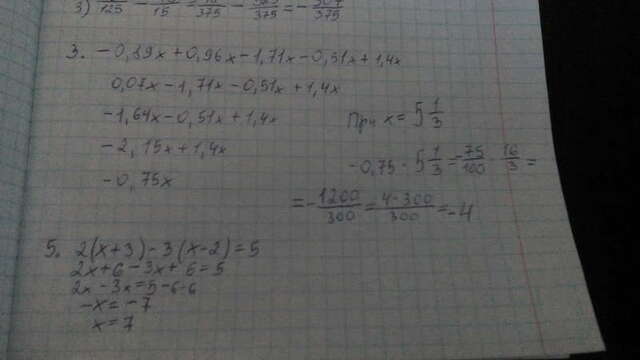 3) /125 - /15 = /375 - /375 = - /375
3. -0,89x+0,96x-1,71x-0,51x+1,4x
0,07x-1,71x-0,51x+1,4x
-1,64x-0,51x+1,4x
-2,15x+1,4x
-0,75x
При x = 5 1/3
-0,75 · 5 1/3 = -75/100 · 16/3 =
= -1200/300 = 4·300/300 = -4
5. 2(x+3)-3(x-2)=5
2x+6-3x+6=5
2x-3x=5-6-6
-x=-7
x=7